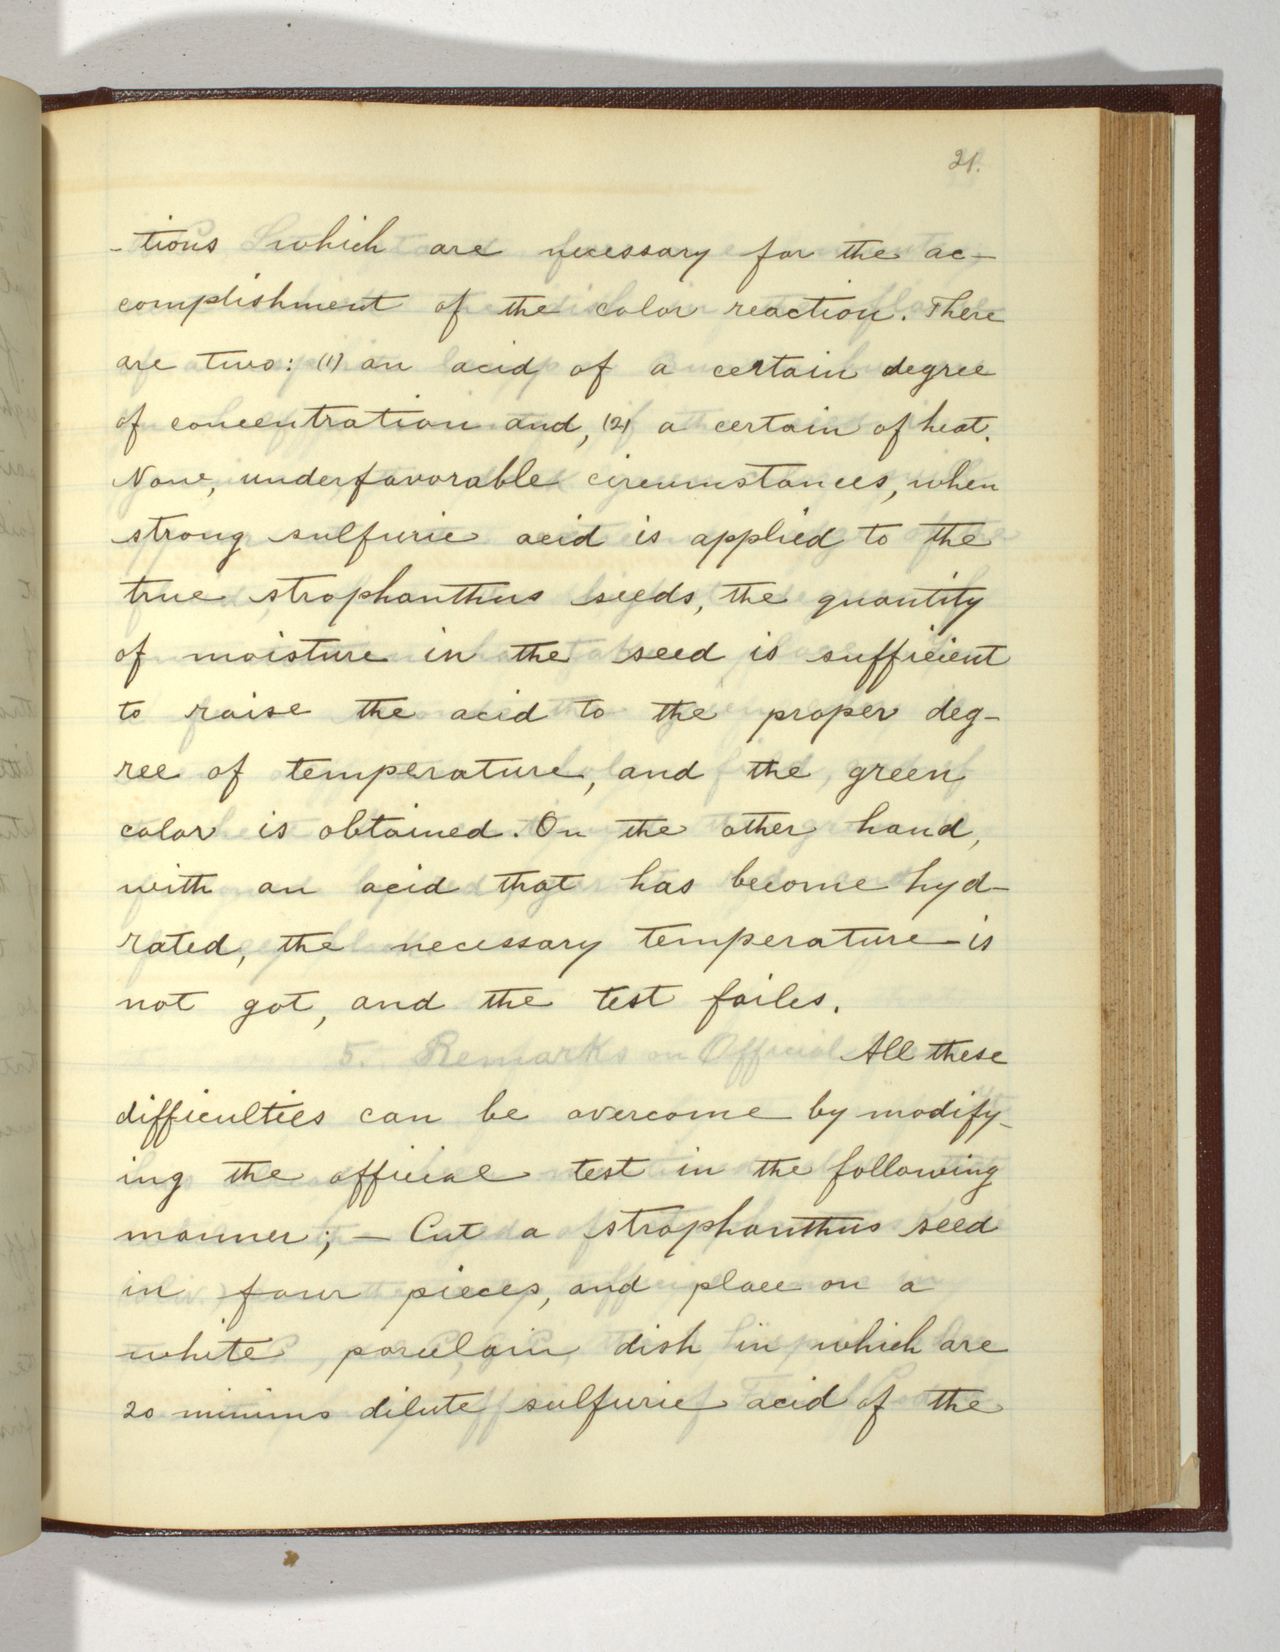 21.
-tions which are necessary for the ac-
complishment of the color reaction. There
are two: (1) an acid of a certain degree
of concentration and, (2) a certain of heat.
Now, under favorable circumstances, when
strong sulfuric acid is applied to the
true strophanthus seeds, the quantity
of moisture in the seed is sufficient
to raise the acid to the proper deg-
ree of temperature, and the green
color is obtained. On the other hand,
with an acid that has become hyd-
rated, the necessary temperature is
not got, and the test failes.
5. Remarks on Official All these
difficulties can be overcome by modify-
ing the official test in the following
manner; — Cut a strophanthus seed
in four pieces, and place on a
white porcelain dish in which are
20 minims dilute sulfuric acid of the